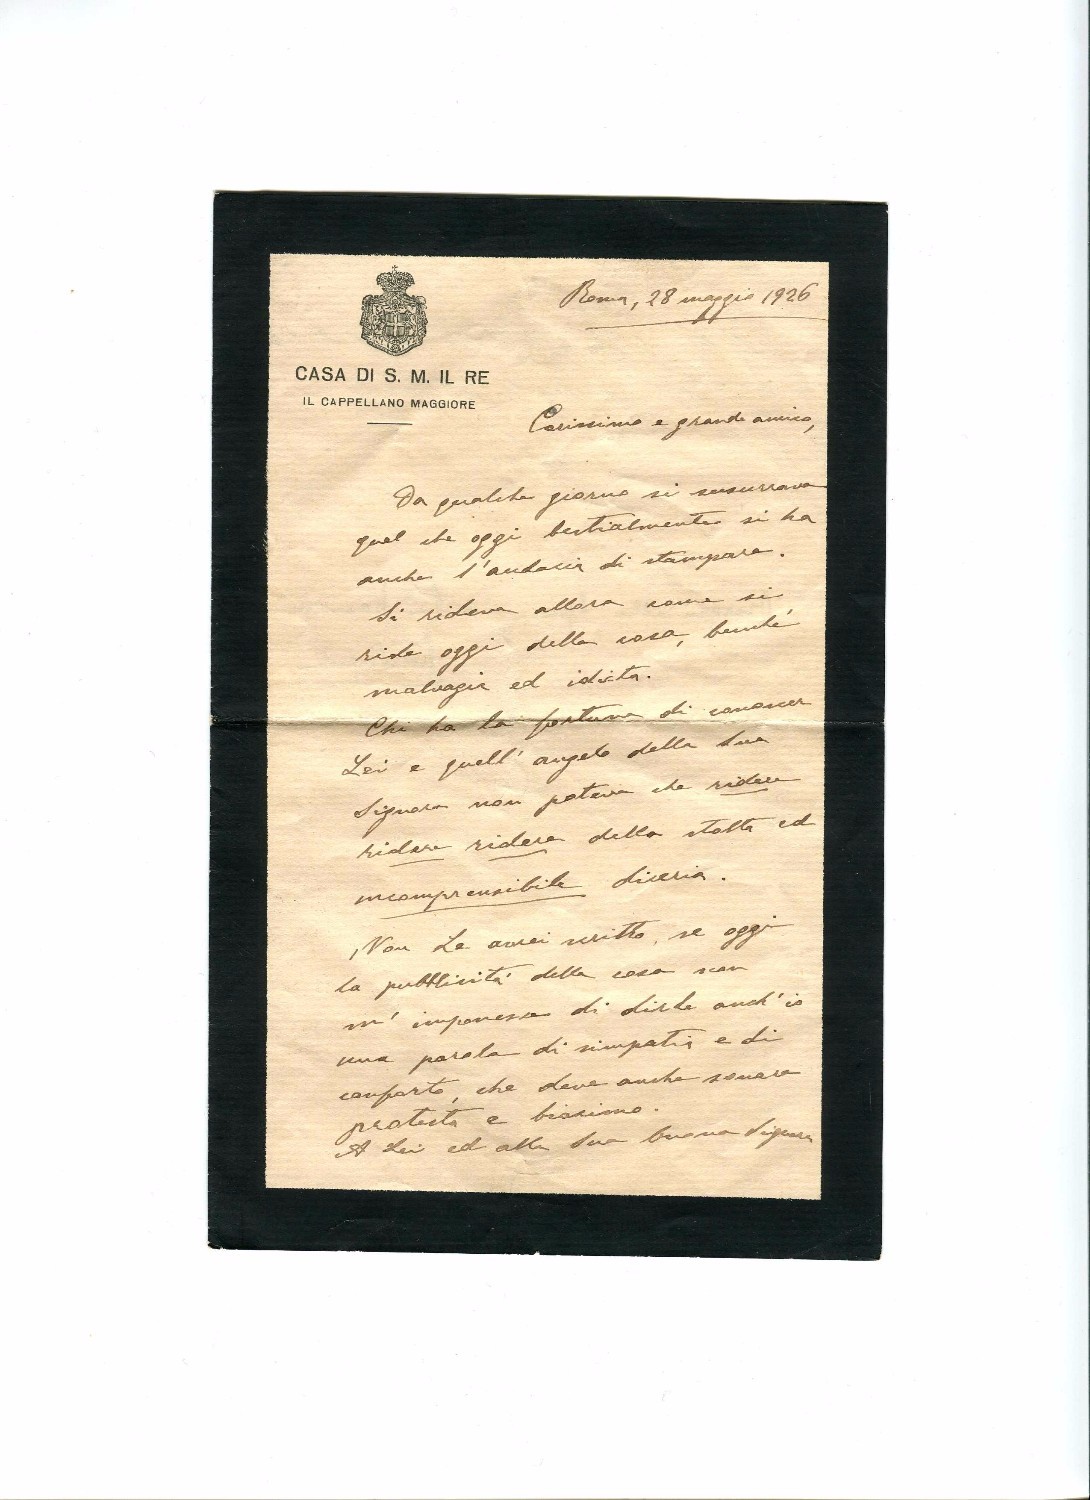 Roma, 28 maggio 1926
CASA DI S. M. IL RE
IL CAPPELLANO MAGGIORE
Carissimo e grande amico,
Da qualche giorno si susurrava
quel che oggi bestialmente si ha
anche l'audacia di stampare.
Si rideva allora come si
ride oggi della cosa, benché
malvagia ed idiota.
Chi ha la fortuna di conoscer
Lei e quell'angelo della Sua
Signora non poteva che ridere
ridere ridere della stolta ed
incomprensibile diceria.
Non Le avrei scritto, se oggi
la pubblicità della cosa non
m'imponesse di dirle anch'io
una parola di simpatia e di
conforto, che deve anche sonare
protesta e biasimo.
A Lei ed alla Sua buona Signora